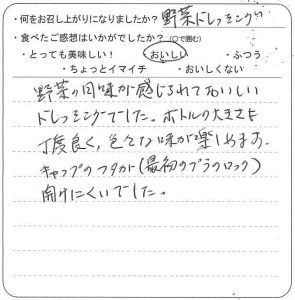 ・何をお召し上がりになりましたか？ 野菜ドレッシング
・食べたご感想はいかがでしたか？（○で囲む）
・とっても美味しい！ ・おいしい ・ふつう
・ちょっとイマイチ ・おいしくない
野菜の旨味が感じられておいしい
ドレッシングでした。ボトルの大きさも
丁度良く、色々な味が楽しめます。
キャップのフタが（最初のプラのロック）
開けにくいでした。